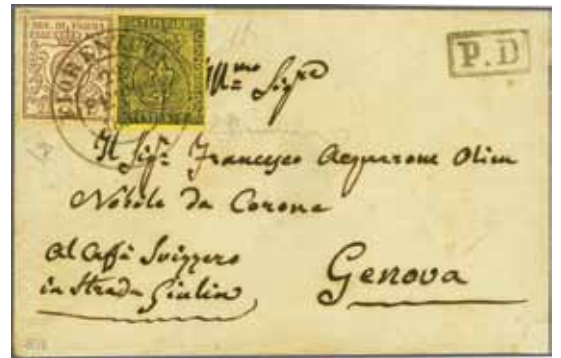 DUC. DI PARMA
FIORENZUOLA
P.D
Ill.mo Sig.re
Il Sig.r Francesco Acquarone Oliva
Nobile da Corona
Al Caffè Svizzero
in Strada Giulia
Genova